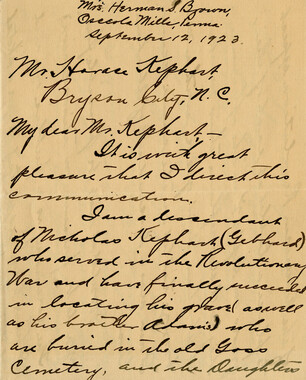 Mrs. Herman S. Brown,
Osceola Mills, Penna.
September 12, 1923.
Mr. Horace Kephart
Bryson City, N.C.
My dear Mr. Kephart,—
It is with great
pleasure that I direct this
communication.
I am a descendant
of Nicholas Kephart (Gebhard)
who served in the Revolutionary
War and have finally succeeded
in locating his grave (as well
as his brother Adams) who
are buried in the old Goss
Cemetery, and the Daughters